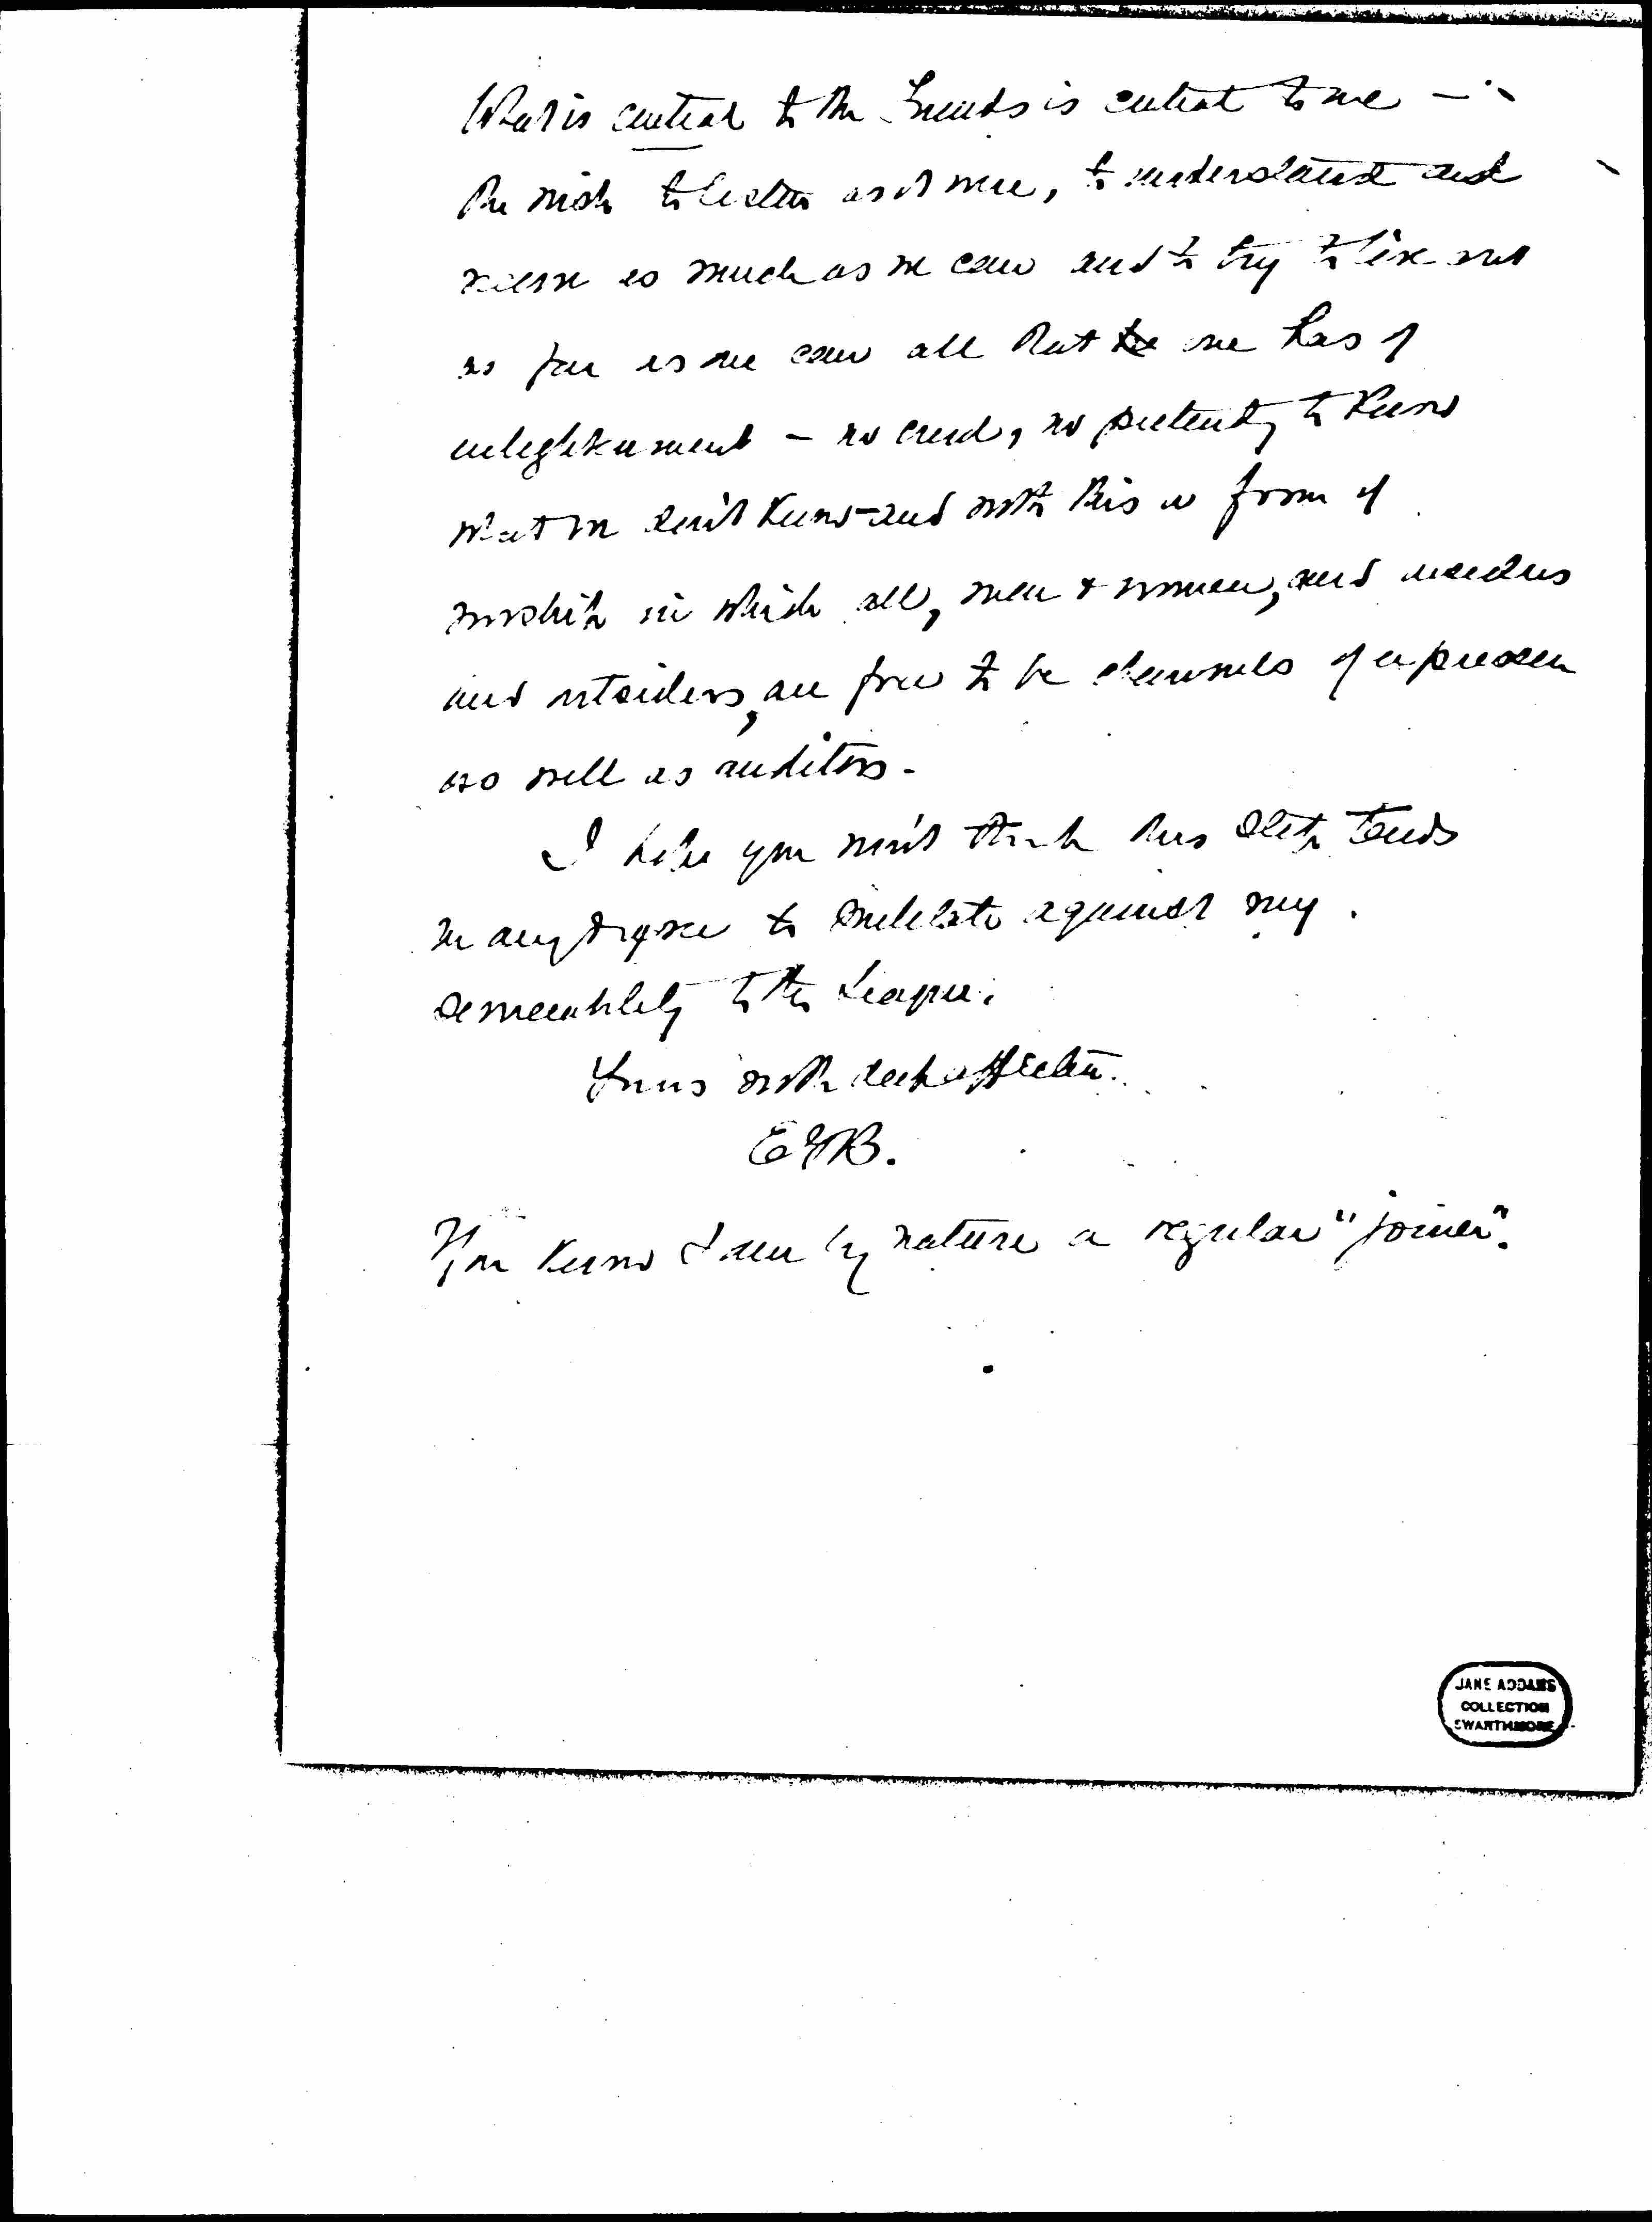 What is central to the Friends is central to me —
the wish to listen as it were, to understand and
receive as much as one can and to try to live out
as far as one can all that he one has of
enlightenment – no creed, no pretending to know
what one don't know – and with this a form of
worship in which all, men & women, and insiders
and outsiders, are free to be channels of expression
as well as auditors.
I hope you won't think this step tends
in any degree to militate against my
serviceability to the League.
Yours with deep affection.
EGB.
You know I am by nature a regular "joiner".
JANE ADDAMS
COLLECTION
SWARTHMORE